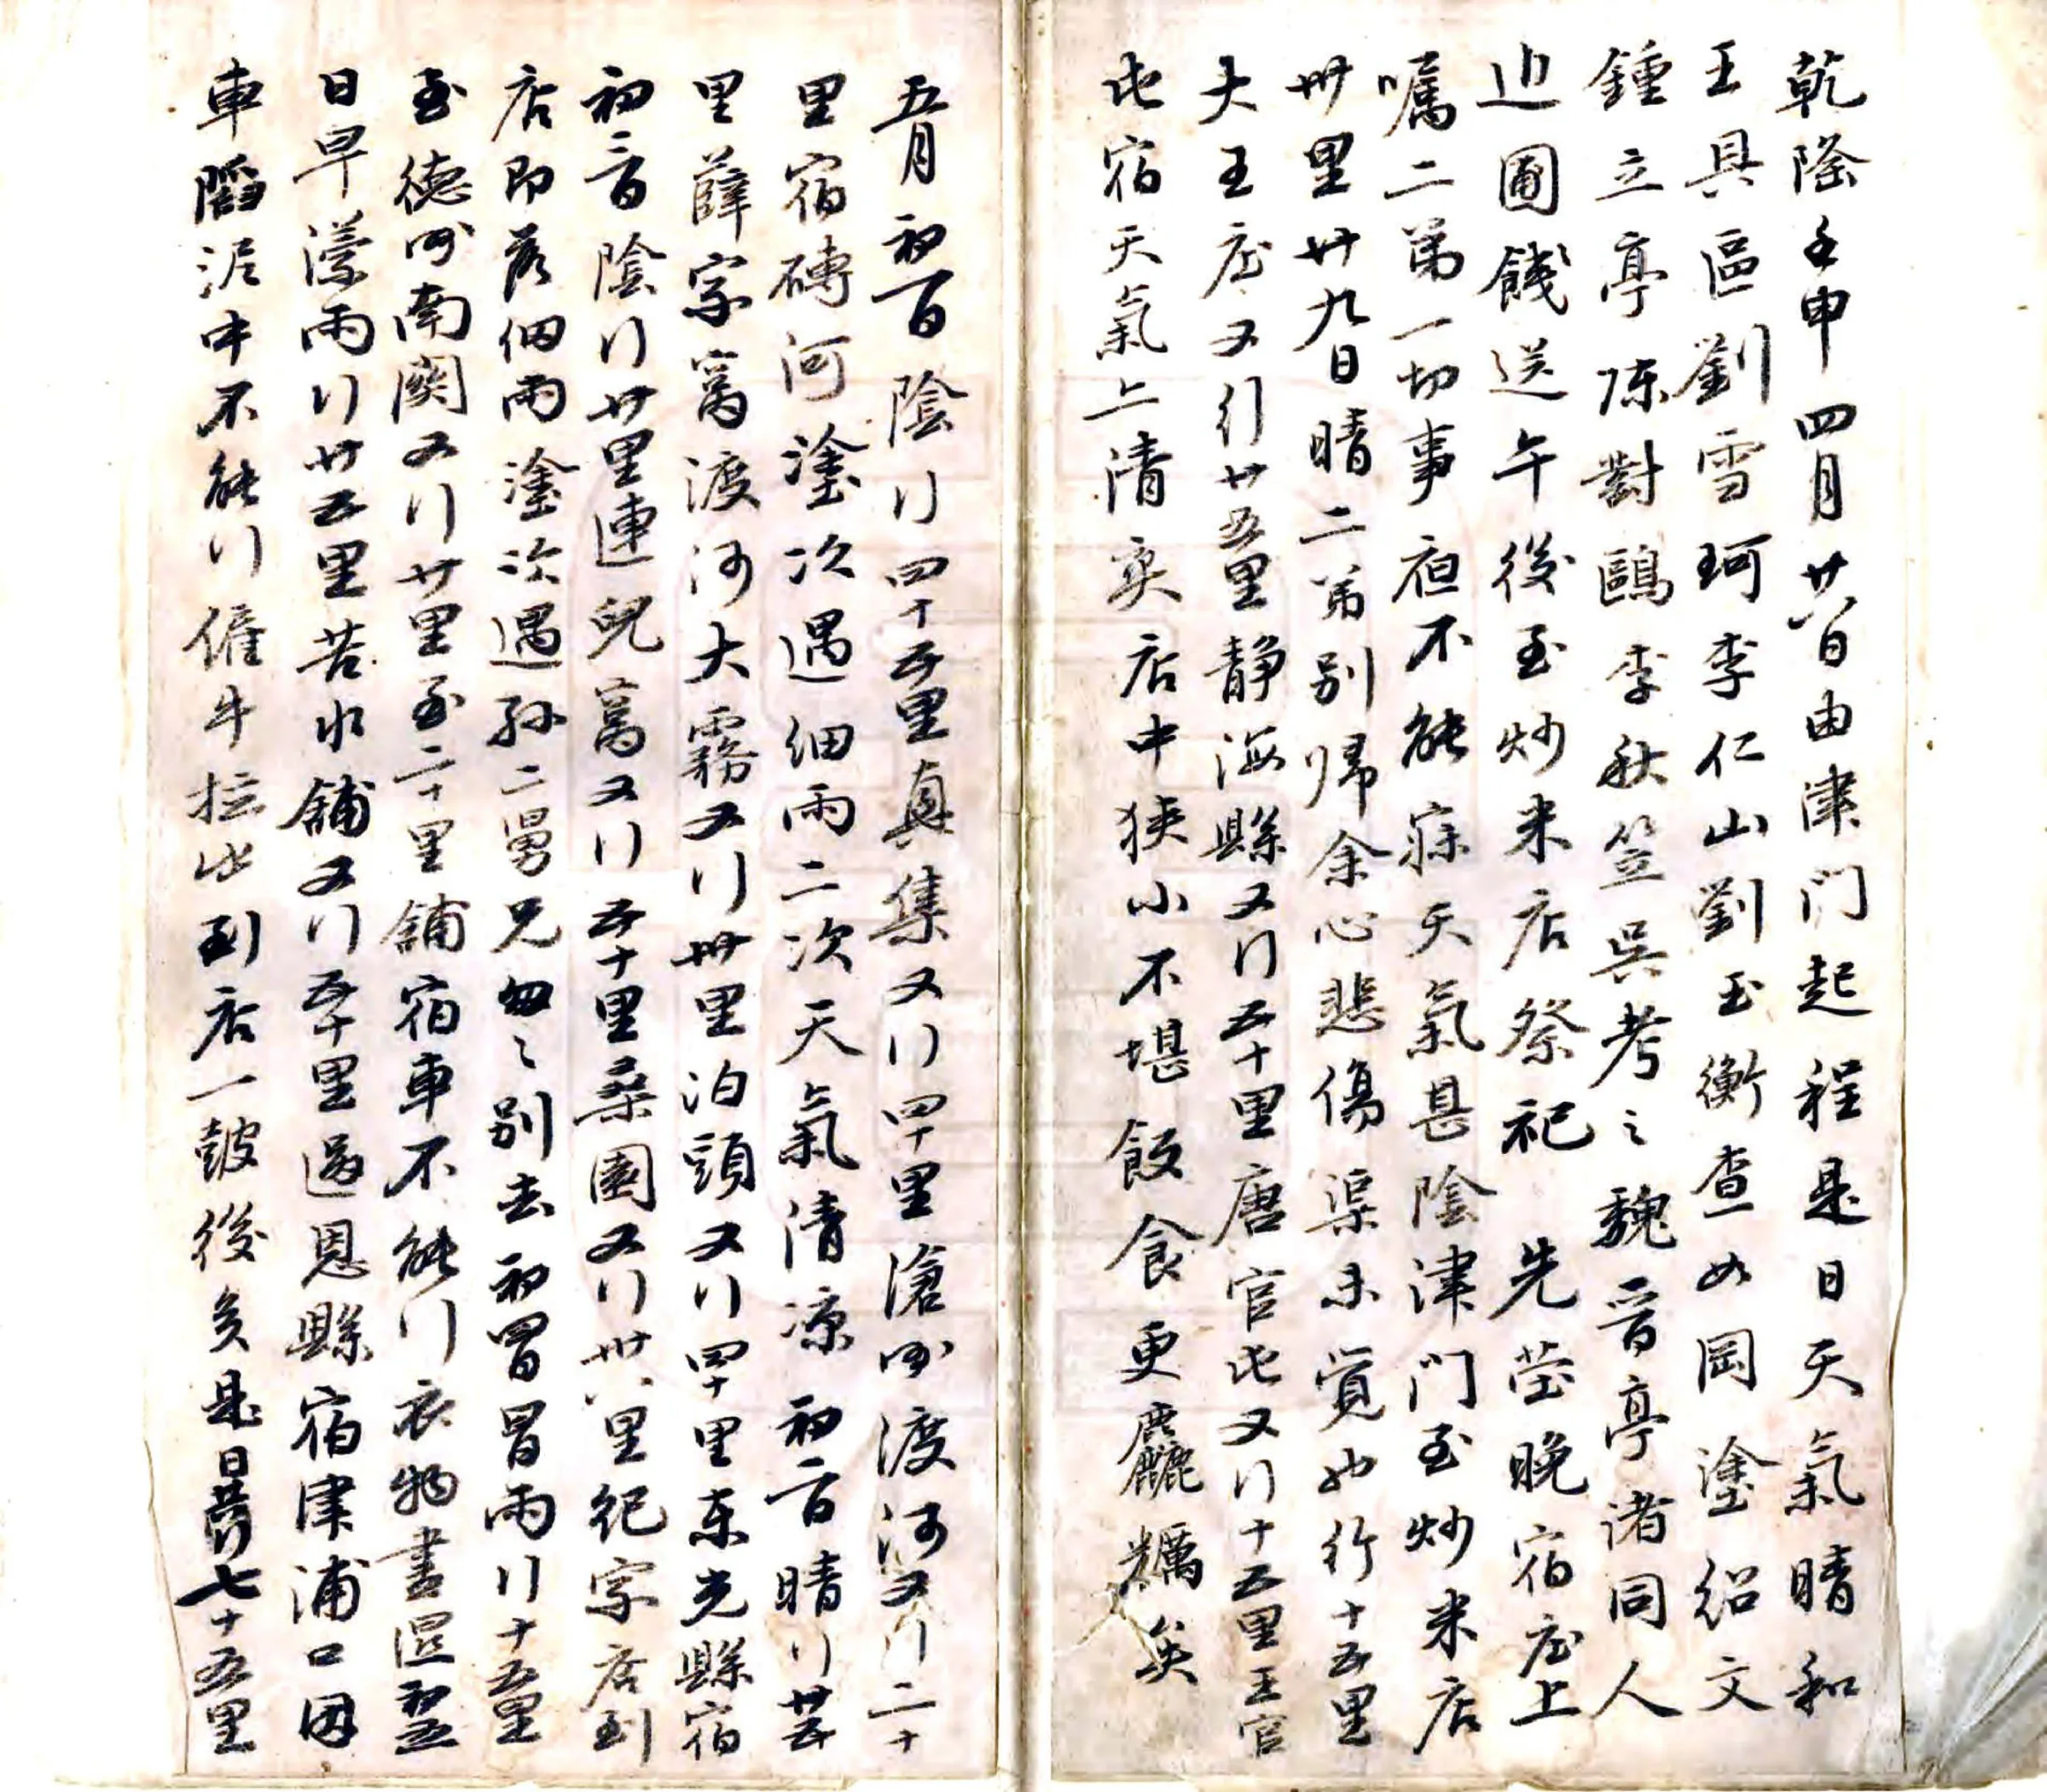 乾隆壬申四月廿八日由津门起程是日天氣晴和
王具區劉雪珂李仁山劉玉衡查如岡塗绍文
鍾立亭陳對鷗李秋笠吳考之魏晋亭诸同人
迎圃餞送午後至炒米店祭祀 先茔晚宿庄上
嘱二弟一切事夜不能寐天氣甚陰津门至炒米店
卅里廿九日晴二弟别歸余心悲傷渠未覺也行十五里
大王庄又行廿五里静海縣又行五十里唐官屯又行十五里王官
屯宿天氣上清爽店中狹小不堪飯食更麤糲矣
五月初一日陰行四十五里真集又行四十里滄州渡河又行二十
里宿磚河塗次遇细雨二次天氣清凉初二日晴行廿五
里薛家窩渡河大霧又行卅里泊頭又行四十里東光縣宿
初三日陰行廿里連兒窩又行五十里桑園又行廿八里纪家店到
店即落细雨塗次遇孙二舅兄匆匆别去初四日冒雨行十五里
至德州南關又行廿里至二十里舖宿車不能行衣物書湿初五
日早濛雨行廿五里苦水舖又行五十里過恩縣宿津浦口因
車陷泥中不能行僱牛拉出到店一皷後矣是日共行七十五里